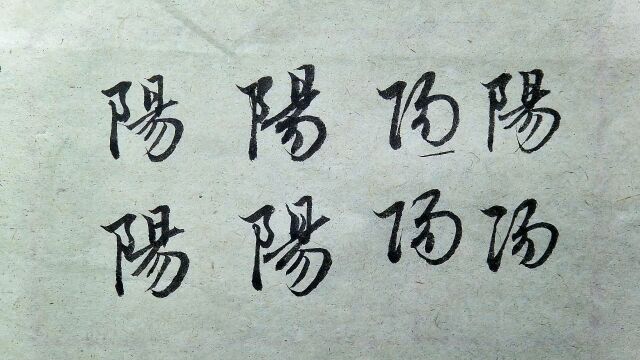 陽 陽 陽 陽
陽 陽 陽 陽